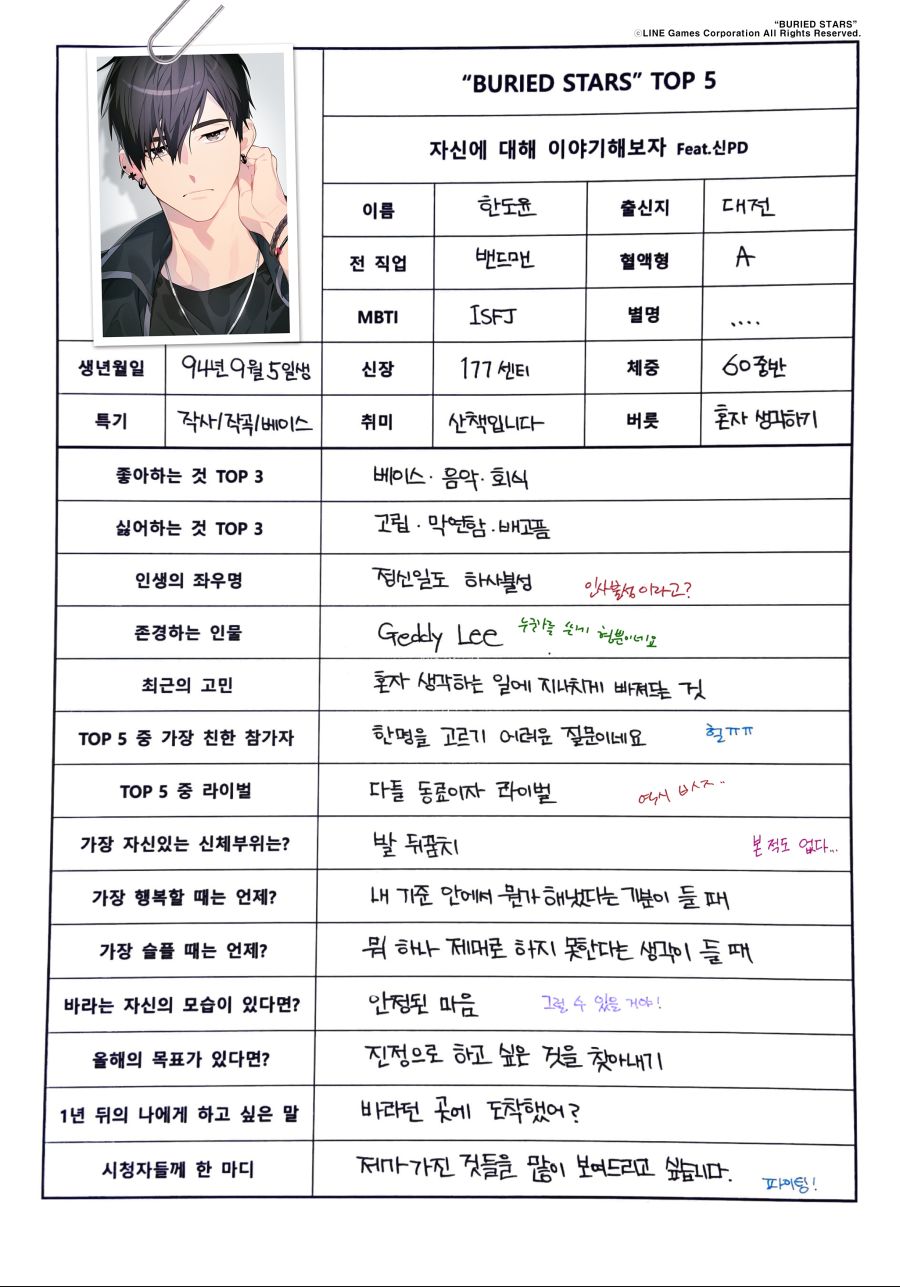 “BURIED STARS”
ⓒLINE Games Corporation All Rights Reserved.
“BURIED STARS” TOP 5
자신에 대해 이야기해보자 Feat.신PD
이름 한도윤 출신지 대전
전 직업 밴드맨 혈액형 A
MBTI ISFJ 별명 ....
생년월일 94년 9월 5일생 신장 177 센티 체중 60중반
특기 작사/작곡/베이스 취미 산책입니다 버릇 혼자 생각하기
좋아하는 것 TOP 3 베이스 · 음악 · 회식
싫어하는 것 TOP 3 고립 · 막연함 · 배고픔
인생의 좌우명 정신일도 하사불성 인사불성이라고?
존경하는 인물 Geddy Lee 누군가를 쏙 형뿐이네요
최근의 고민 혼자 생각하는 일에 지나치게 빠져드는 것
TOP 5 중 가장 친한 참가자 한명을 고르기 어려운 질문이네요 헐ㅠㅠ
TOP 5 중 라이벌 다들 동료이자 라이벌 역시
가장 자신있는 신체부위는? 발 뒤꿈치 본 적도 없다...
가장 행복할 때는 언제? 내 기준 안에서 뭔가 해냈다는 기분이 들 때
가장 슬플 때는 언제? 뭐 하나 제대로 하지 못한다는 생각이 들 때
바라는 자신의 모습이 있다면? 안정된 마음 그럴 수 있을 거야!
올해의 목표가 있다면? 진정으로 하고 싶은 것을 찾아내기
1년 뒤의 나에게 하고 싶은 말 바라던 곳에 도착했어?
시청자들께 한 마디 제가 가진 것들을 많이 보여드리고 싶습니다. 파이팅!